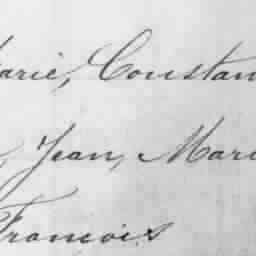 Marie, Constan
, Jean, Mari
Francois